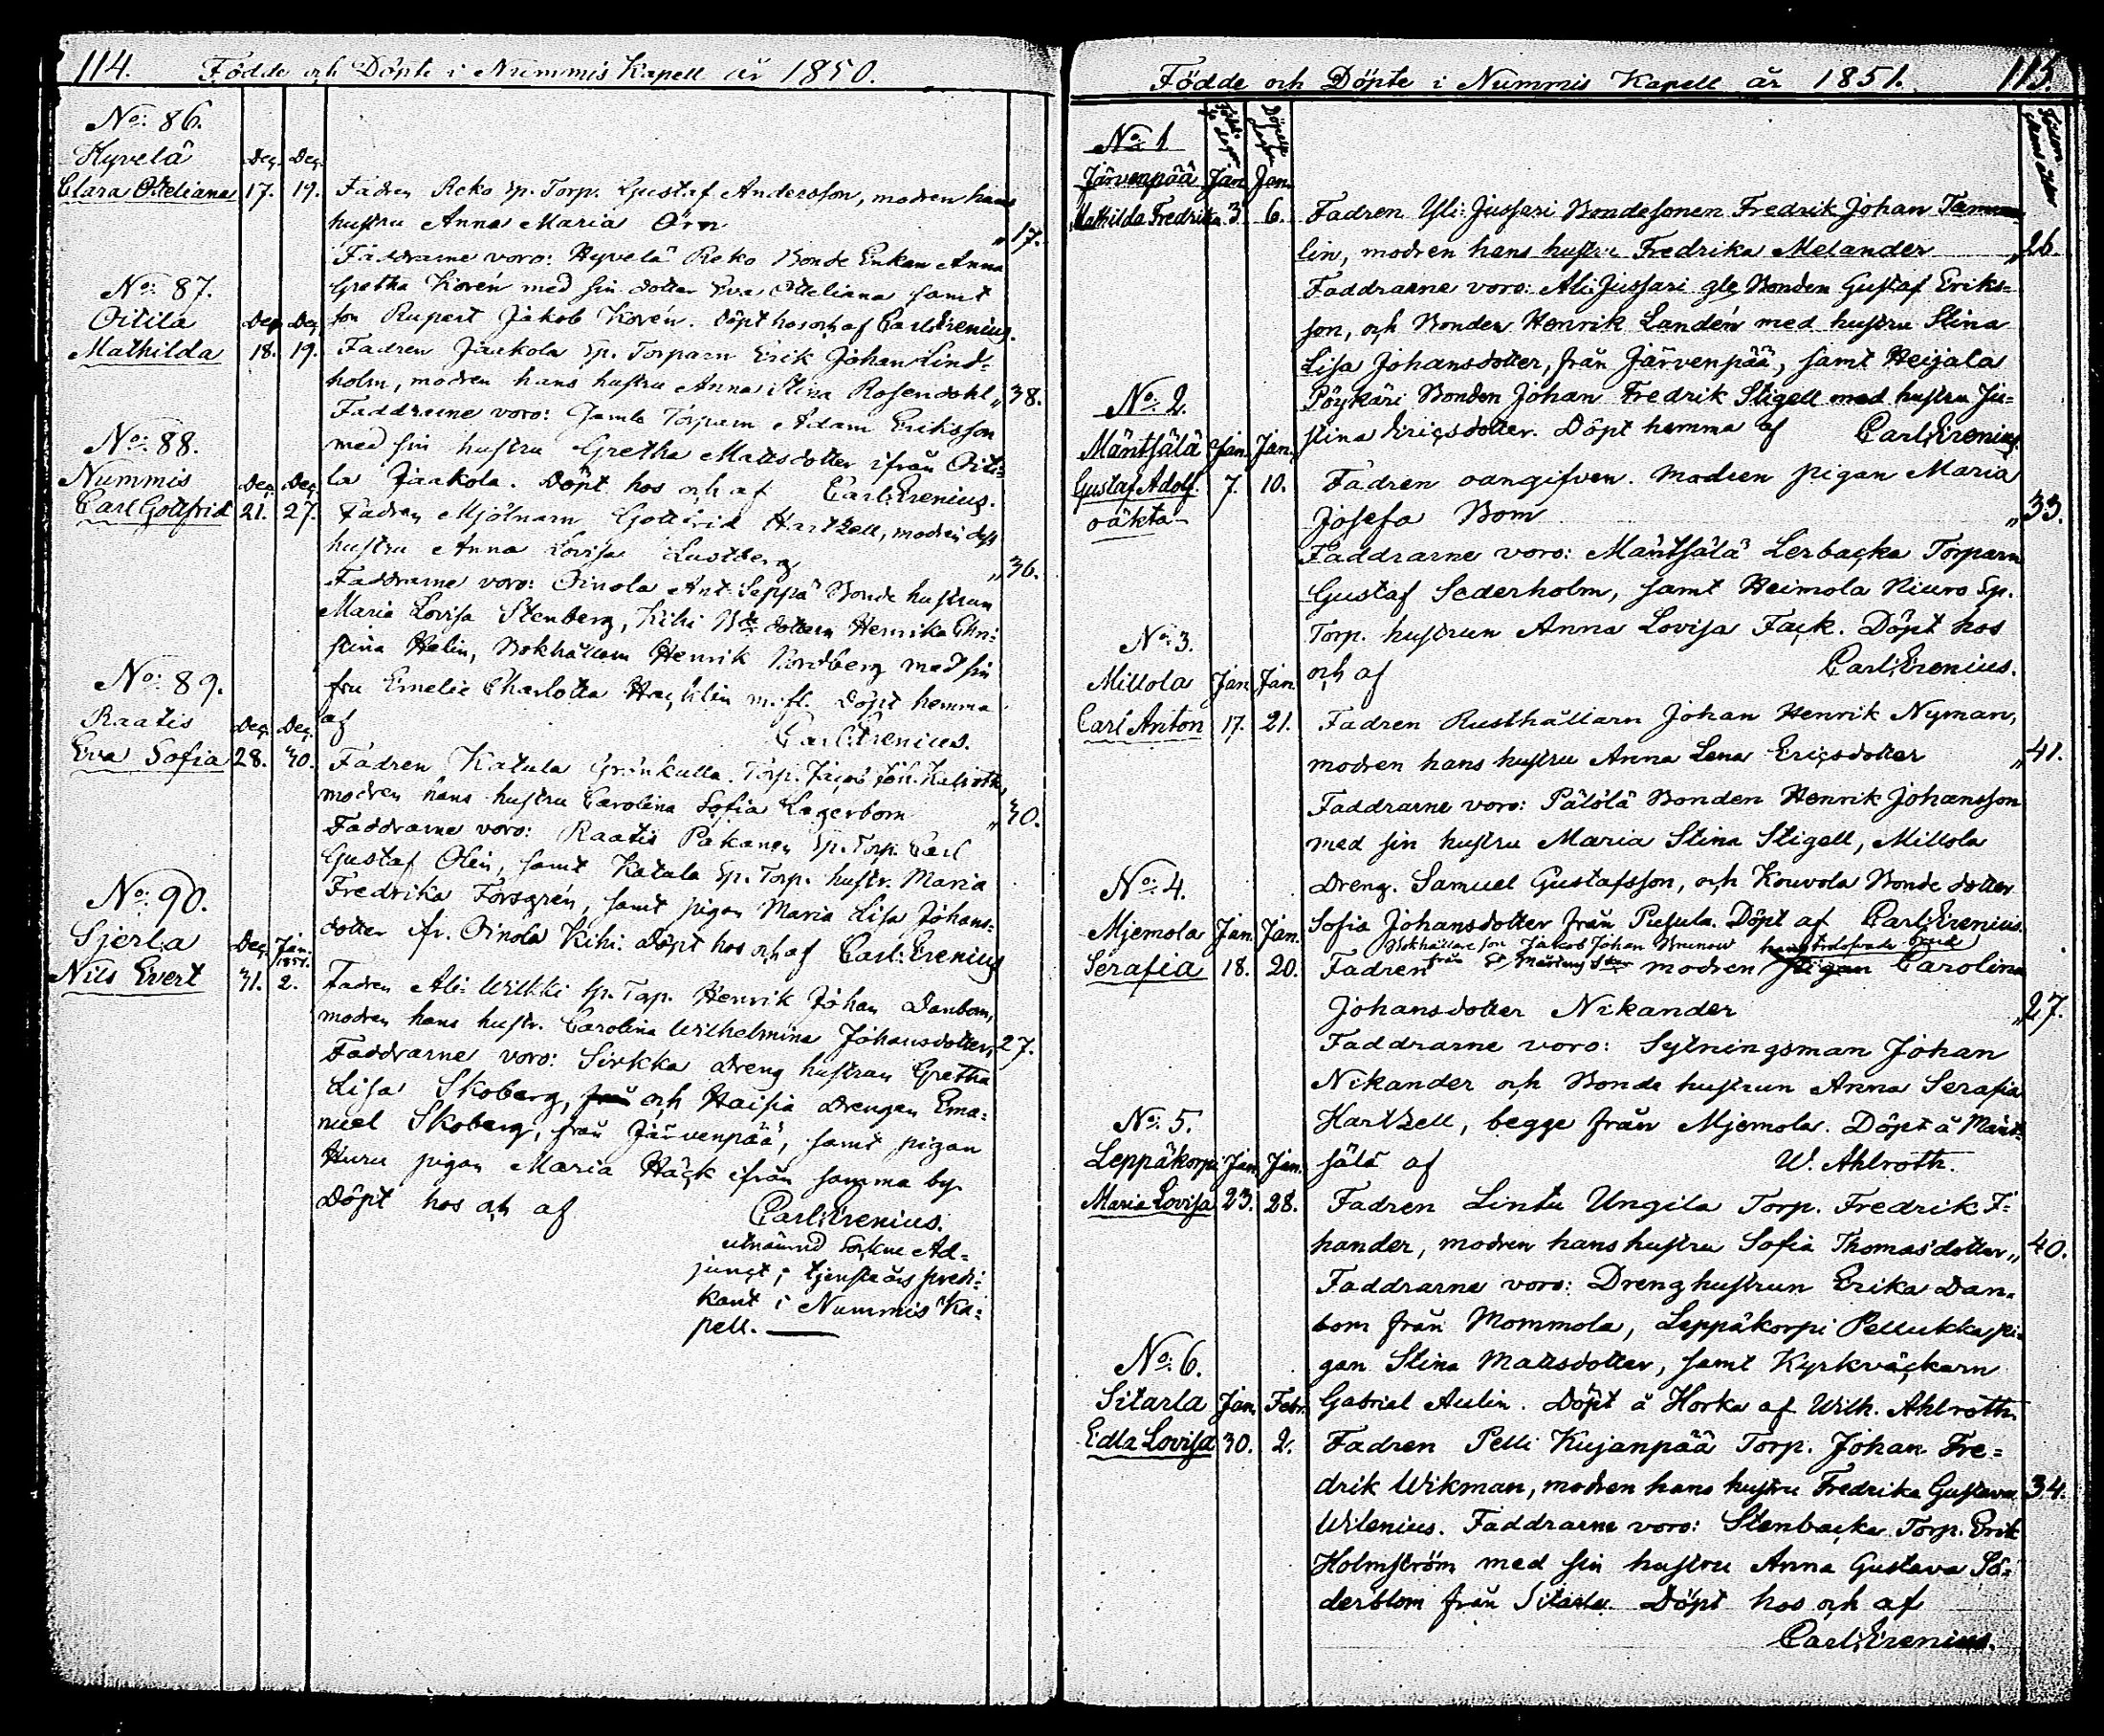 114. Födde och Döpte i Nummis Kapell år 1850.
No: 86.
Hyvelä Dec. Dec.
Clara Otteliana 17. 19. Fadren Reko Sp. Torp. Gustaf Andersson, modren hans
hustru Anna Maria Örn " 17.
Faddrarne voro: Hyvelä Reko Bonde Enkan Anna
Gretha Korén med sin dotter Eva Otteliana samt
No: 87.
Oitila Dec. Dec. son Rupert Jakob Korén. Döpt hos och af Carl: Erenius.
Mathilda 18. 19. Fadren Jaakola Sp. Torparn Erik Johan Lind=
holm, modren hans hustru Anna Stina Rosendahl " 38.
Faddrarne voro: Gamla Torparn Adam Eriksson
No: 88.
med sin hustru Gretha Mattsdotter ifrån Oiti=
Nummis Dec. Dec. la Jaakola. Döpt hos och af Carl: Erenius.
Carl Gottfrid 21. 27. Fadren Mjölnarn Gottfrid Hartzell, modren dess
hustru Anna Lovisa Lustberg " 36.
Faddrarne voro: Oinola Ant-Seppä Bonde hustrun
Maria Lovisa Stenberg, Kihi Bde dottern Henrika Chri=
stina Helin, Bokhållarn Henrik Nordberg med sin
No: 89.
fru Emelie Charlotta Häcklin m. fl. Döpt hemma
Raatis Dec. Dec. af Carl: Erenius.
Eva Sofia 28. 30. Fadren Katula Grönkulla Torp. Jacob Joh.
modren hans hustru Carolina Sofia Lagerbom " 30.
Faddrarne voro: Raatis Pakanen Sp. Torp. Carl
Gustaf Olin, samt Katula Sp. Torp. hustr. Maria
No: 90.
Fredrika Forsgrén, samt pigan Maria Lisa Johans=
Sjerla Dec. Jan. 1851. dotter fr. Oinola Kihi. Döpt hos och af Carl: Erenius
Nils Evert 31. 2. Fadren Ali-Wilkki Sp. Torp. Henrik Johan Danbom,
modren hans hustr. Carolina Wilhelmina Johansdotter " 27.
Faddrarne voro: Sirkka Dreng hustrun Gretha
Lisa Skoberg, från och Haisia Drengen Ema=
nuel Skoberg, från Järvenpää, samt pigan
Huru pigan Maria Häck ifrån samma by.
Döpt hos och af Carl: Erenius.
utnämnd Sockne Ad=
junct; tjenste års predi=
kant i Nummis Ka=
pell.
Födde och Döpte i Nummis Kapell år 1851. 115.
Födelse dagen Döpelse dagen
No: 1
Järvenpää Jan. Jan.
Mathilda Fredrika 3 6. Fadren Yli-Jussari Bondesonen Fredrik Johan Tamme
lin, modren hans hustru Fredrika Melander " 26.
Faddrarne voro: Ali-Jussari gle Bonden Gustaf Eriks=
son, och Bonden Henrik Landén med hustru Stina
Lisa Johansdotter, från Järvenpää, samt Heijala
No: 2.
Pöykäri Bonden Johan Fredrik Stigell med hustru Ju=
Mäntsälä Jan. Jan. stina Ericsdotter. Döpt hemma af Carl: Erenius.
Gustaf Adolf. 7. 10. Fadren oangifven. Modren pigan Maria
oäkta Josefa Bom " 33.
Faddrarne voro: Mäntsälä Lerbacka Torparn
Gustaf Sederholm, samt Heimola Niuro Sp.
No: 3.
Torp. hustrun Anna Lovisa Fack. Döpt hos
Millola Jan. Jan. och af Carl: Erenius.
Carl Anton 17. 21. Fadren Rusthållarn Johan Henrik Nyman,
modren hans hustru Anna Lena Ericsdotter " 41.
Faddrarne voro: Pälölä Bonden Henrik Johansson
med sin hustru Maria Stina Stigell, Millola
No: 4.
Dreng. Samuel Gustafsson, och Kouvola Bonde dotter
Mjemola Jan. Jan. Sofia Johansdotter från Pusula. Döpt af Carl: Erenius.
Bokhållare son Jakob Johan Brunow hans trolofvade brud
från St. Mårtens Skn
Serafia 18. 20. Fadren modren pigan Carolina
Johansdotter Nikander " 27.
Faddrarne voro: Sytningsman Johan
Nikander och Bonde hustrun Anna Serafia
No: 5.
Hartzell, begge från Mjemola. Döpt å Mänt=
Leppäkorpi Jan. Jan. sälä af W. Ahlroth.
Maria Lovisa 23. 28. Fadren Lintu Ungila Torp. Fredrik F=
hander, modren hans hustru Sofia Thomasdotter " 40.
Faddrarne voro: Dreng hustrun Erika Dan=
bom från Mommola, Leppäkorpi Pellukka pi=
No: 6.
gan Stina Mattsdotter, samt Kyrkväckarn
Sitarla Jan. Febr. Gabriel Aulin. Döpt å Horka af Wilh. Ahlroth.
Edla Lovisa 30. 2. Fadren Pelli Kujanpää Torp. Johan Fre=
drik Wikman, modren hans hustru Fredrika Gustava 34.
Wilenius. Faddrarne voro: Stenbacka Torp. Erik
Holmström med sin hustru Anna Gustava Sö=
derblom från Sitarla. Döpt hos och af
Carl: Erenius.